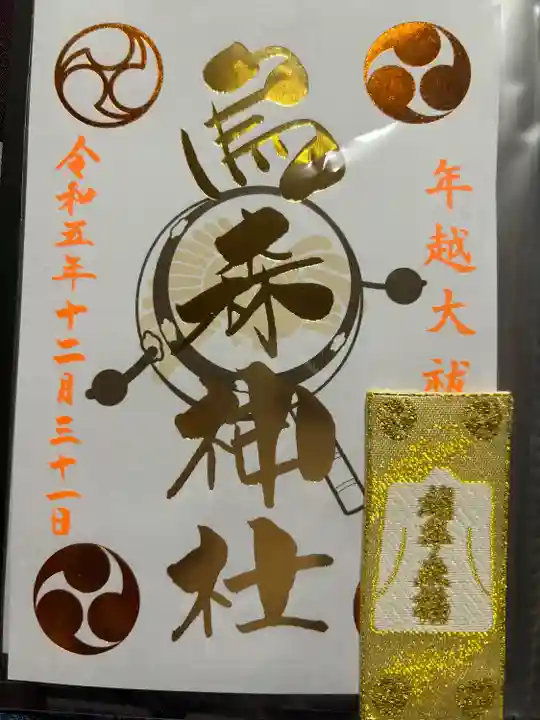 年越大祓
烏森神社
令和五年十二月三十一日